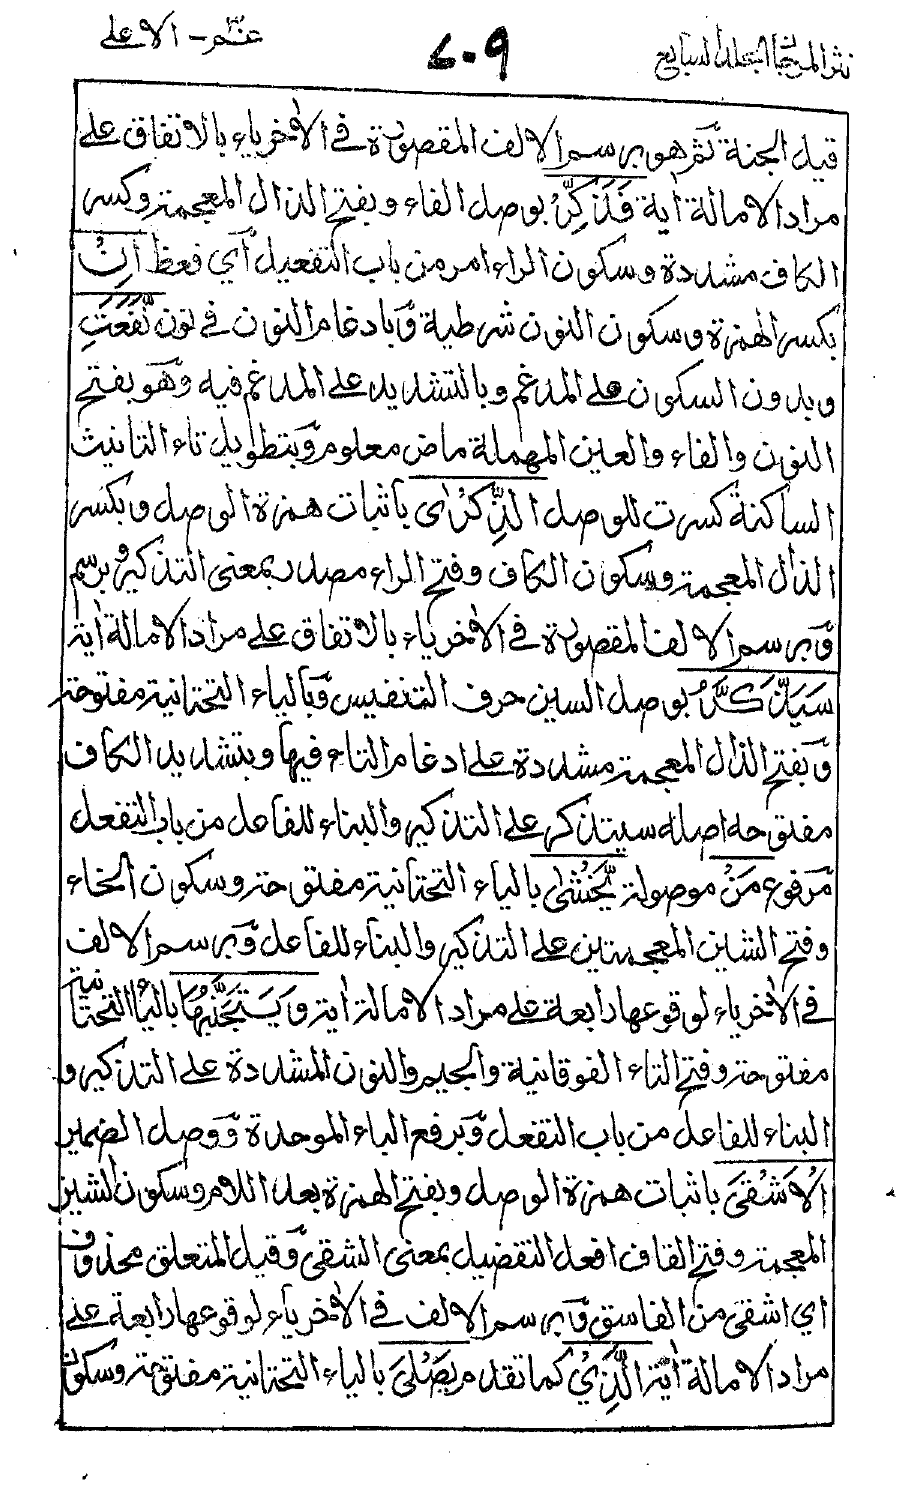 نثر المرجان المجلد السابع
٧٠٩
عمّ - الاعلى
قيل الجنة ثم هو برسم الالف المقصورة في الاخرياء بالاتفاق على
مراد الامالة اية فَذَكِّرْ بوصل الفاء وبفتح الذال المعجمة وكسر
الكاف مشددة وسكون الراء امر من باب التفعيل أي فعظ اِنْ
بكسر الهمزة وسكون النون شرطية وبادغام النون في نون نَّفَعَتِ
وبدون السكون على المدغم وبالتشديد على المدغم فيه وهو بفتح
النون والفاء والعين المهملة ماض معلوم وبتطويل تاء التانيث
الساكنة كسرت للوصل الذِّكْرٰى باثبات همزة الوصل وبكسر
الذال المعجمة وسكون الكاف وفتح الراء مصدر بمعنى التذكير وبرسم
وبرسم الالف المقصورة في الاخرياء بالاتفاق على مراد الامالة اية
سَيَذَّكَّرُ بوصل السين حرف التنفيس وبالياء التحتانية مفتوحة
وبفتح الذال المعجمة مشددة على ادغام التاء فيها وبتشديد الكاف
مفتوحه اصله سيتذكر على التذكير والبناء للفاعل من باب التفعل
مرفوع مَنْ موصولة يَّخْشٰى بالياء التحتانية مفتوحة وسكون الخاء
وفتح الشين المعجمتين على التذكير والبناء للفاعل وبرسم الالف
في الاخرياء لوقوعها رابعة على مراد الامالة اية وَيَتَجَنَّبُهَا بالياء التحتانية
مفتوحة وفتح التاء الفوقانية والجيم والنون المشددة على التذكير و
البناء للفاعل من باب التفعل وبرفع الباء الموحدة ووصل الضمير
الْاَشْقَى باثبات همزة الوصل وبفتح الهمزة بعد اللام وسكون الشين
المعجمة وفتح القاف افعل التفضيل بمعنى الشقى وقيل المتعلق محذوف
اي اشقى من الفاسق وبرسم الالف في الاخرياء لوقوعها رابعة على
مراد الامالة اية الَّذِيْ كما تقدم يَصْلَى بالياء التحتانية مفتوحة وسكون